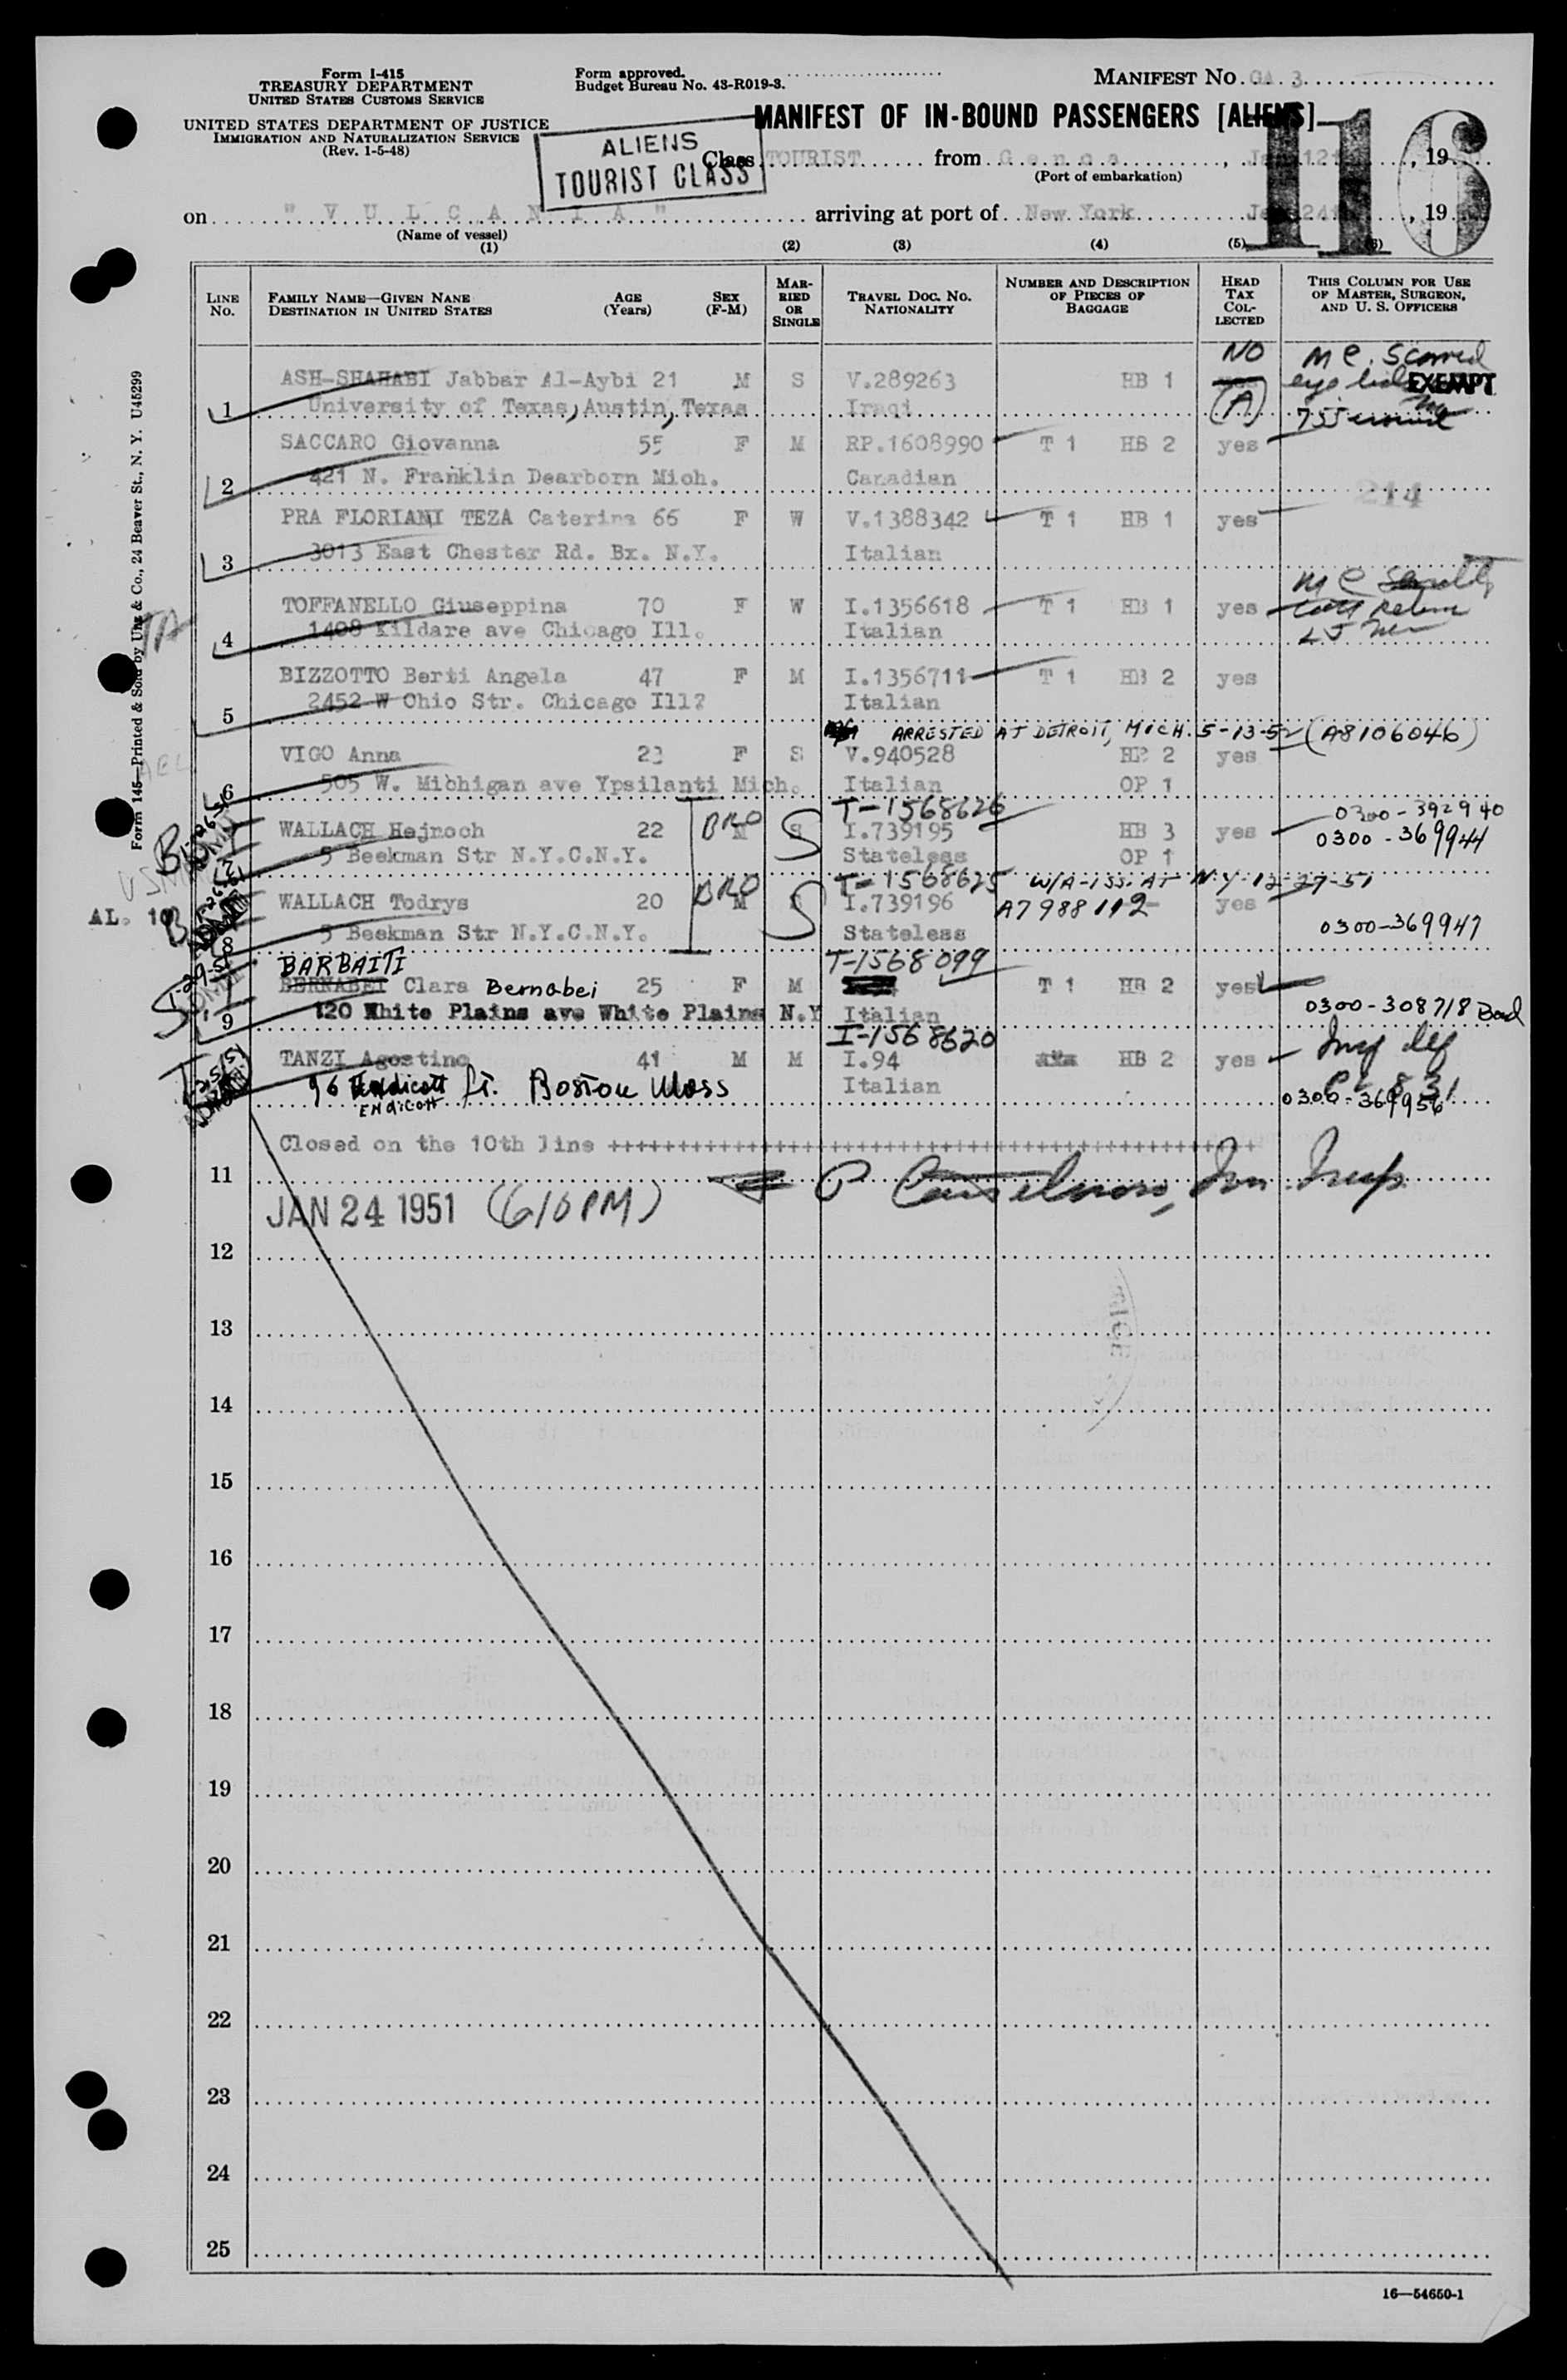 Form I-415
TREASURY DEPARTMENT
UNITED STATES CUSTOMS SERVICE
UNITED STATES DEPARTMENT OF JUSTICE
IMMIGRATION AND NATURALIZATION SERVICE
(Rev. 1-5-48)
Form approved.
Budget Bureau No. 43-R019-3.
MANIFEST NO. GA 3
MANIFEST OF IN-BOUND PASSENGERS [ALIENS]
116
ALIENS
TOURIST CLASS
Class TOURIST from Genoa, Jan 12, 19
(Port of embarkation)
on "VULCANIA" arriving at port of New York Jan 24, 19
(Name of vessel)
(1) (2) (3) (4) (5) (6)
LINE NO. FAMILY NAME—GIVEN NAME DESTINATION IN UNITED STATES AGE (Years) SEX (F-M) MARRIED OR SINGLE TRAVEL DOC. NO. NATIONALITY NUMBER AND DESCRIPTION OF PIECES OF BAGGAGE HEAD TAX COLLECTED THIS COLUMN FOR USE OF MASTER, SURGEON, AND U. S. OFFICERS
NO M C. Scarred
ASH-SHAHABI Jabbar Al-Aybi 21 M S V.289263 HB 1 yes eye lids EXEMPT
1 University of Texas, Austin, Texas Iraqi (A)
SACCARO Giovanna 55 F M RP.1608990 T 1 HB 2 yes
2 421 N. Franklin Dearborn Mich. Canadian
214
PRA FLORIANI TEZA Caterina 66 F W V.1388342 T 1 HB 1 yes
3 3013 East Chester Rd. Bx. N.Y. Italian
M C
TOFFANELLO Giuseppina 70 F W I.1356618 T 1 HB 1 yes
4 1408 Kildare ave Chicago Ill. Italian
BIZZOTTO Berti Angela 47 F M I.1356711 T 1 HB 2 yes
5 2452 W Ohio Str. Chicago Ill? Italian
ARRESTED AT DETROIT, MICH. 5-13-52 (A8106046)
VIGO Anna 23 F S V.940528 HB 2 yes
6 505 W. Mibhigan ave Ypsilanti Mich. Italian OP 1
T-1568626 0300-392940
WALLACH Hejnoch 22 BRO M S I.739195 HB 3 yes 0300-369944
7 5 Beekman Str N.Y.C.N.Y. Stateless OP 1
T-1568625 W/A-ISS. AT N.Y. 12-27-51
AL. WALLACH Todrys 20 BRO M S I.739196 A7988112 yes
8 5 Beekman Str N.Y.C.N.Y. Stateless 0300-369947
BARBAITI T-1568099
BERNABEI Clara Bernabei 25 F M T 1 HB 2 yes
9 120 White Plains ave White Plains N.Y Italian 0300-308718
I-1568620
TANZI Agostino 41 M M I.94 HB 2 yes
96 Endicott St. Boston Mass Italian
ENDICOTT
0300-369956
Closed on the 10th line ++++++++++++++++++++++++++++++++++++++++++++++
11
JAN 24 1951 (610 PM)
12
13
14
15
16
17
18
19
20
21
22
23
24
25
16—54650-1
Form 145—Printed & Sold by Unz & Co., 24 Beaver St., N. Y. U45299